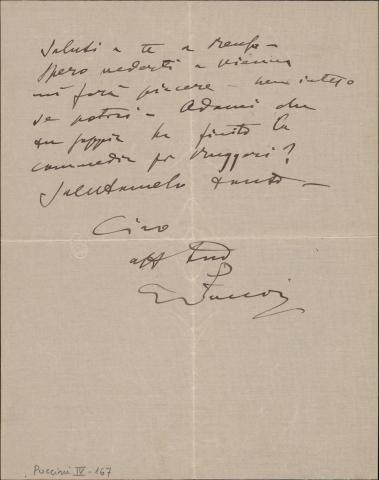 Saluti a te a Renzo –
Spero vederti a Vienna
mi farà piacere – beninteso
se potrai – Adami che
tu sappia ha finito la
commedia per Ruggeri?
Salutamelo tanto –
Ciao
aff tuo
GPuccini
Puccini IV - 167